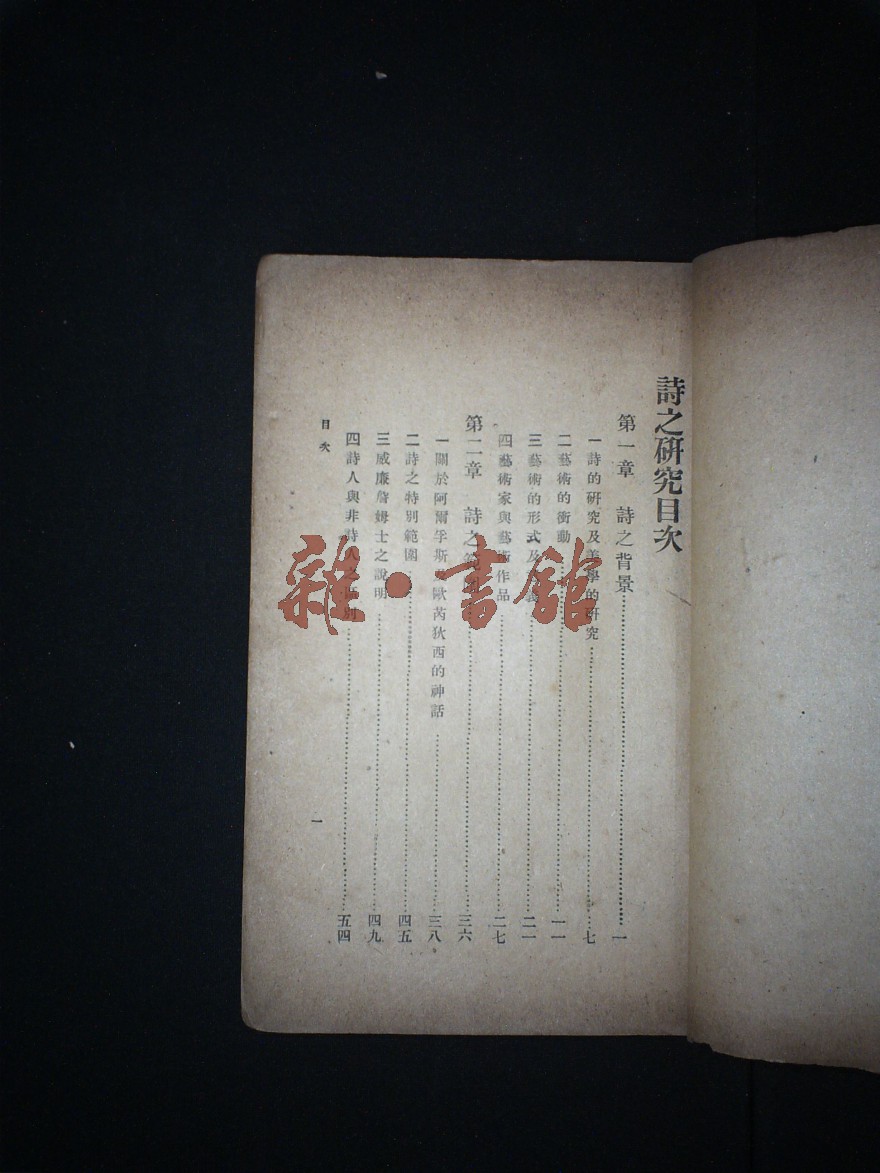 詩之研究目次
第一章 詩之背景……一
一 詩的研究及美學的研究……七
二 藝術的衝動……一一
三 藝術的形式及……二一
四 藝術家與藝術作品……二七
第二章 詩之範圍……三六
一 關於阿爾孚斯 歐芮狄西的神話……三八
二 詩之特別範圍……四五
三 威廉詹姆士之說明……四九
四 詩人與非詩人之區別……五四
目次
一
雜·書館